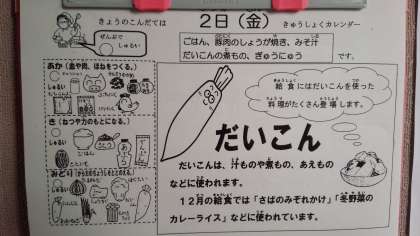 きょうのこんだては
2日(金)
きゅうしょくカレンダー
ぜんぶで
しゅるい
ごはん、豚肉のしょうが焼き、みそ汁
だいこんの煮もの、ぎゅうにゅう
です。
あか(血や肉、ほねをつくる。)
しゅるい
き(ねつや力のもとになる。)
しゅるい
ごはん
みどり(からだのちょうしをととのえる。)
しゅるい
給食にはだいこんを使った
料理がたくさん登場します。
だいこん
だいこんは、汁ものや煮もの、あえもの
などに使われます。
12月の給食では「さばのみぞれかけ」「冬野菜の
カレーライス」などに使われています。